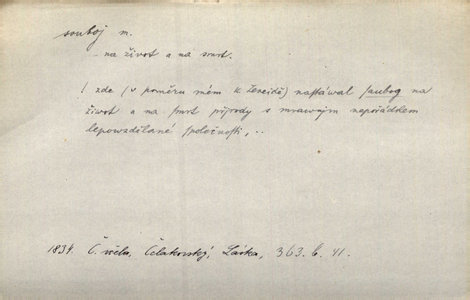 souboj m.
– na život a na smrt.
! zde (v poměru mém k Zeneidě) nastáwal saubog na
žiwot a na smrt přjrody s mrawným nepořádkem
lepowzdělané společnosti, ..
1834. Č. včela, Čelakovský, Láska, 363. b. 41.